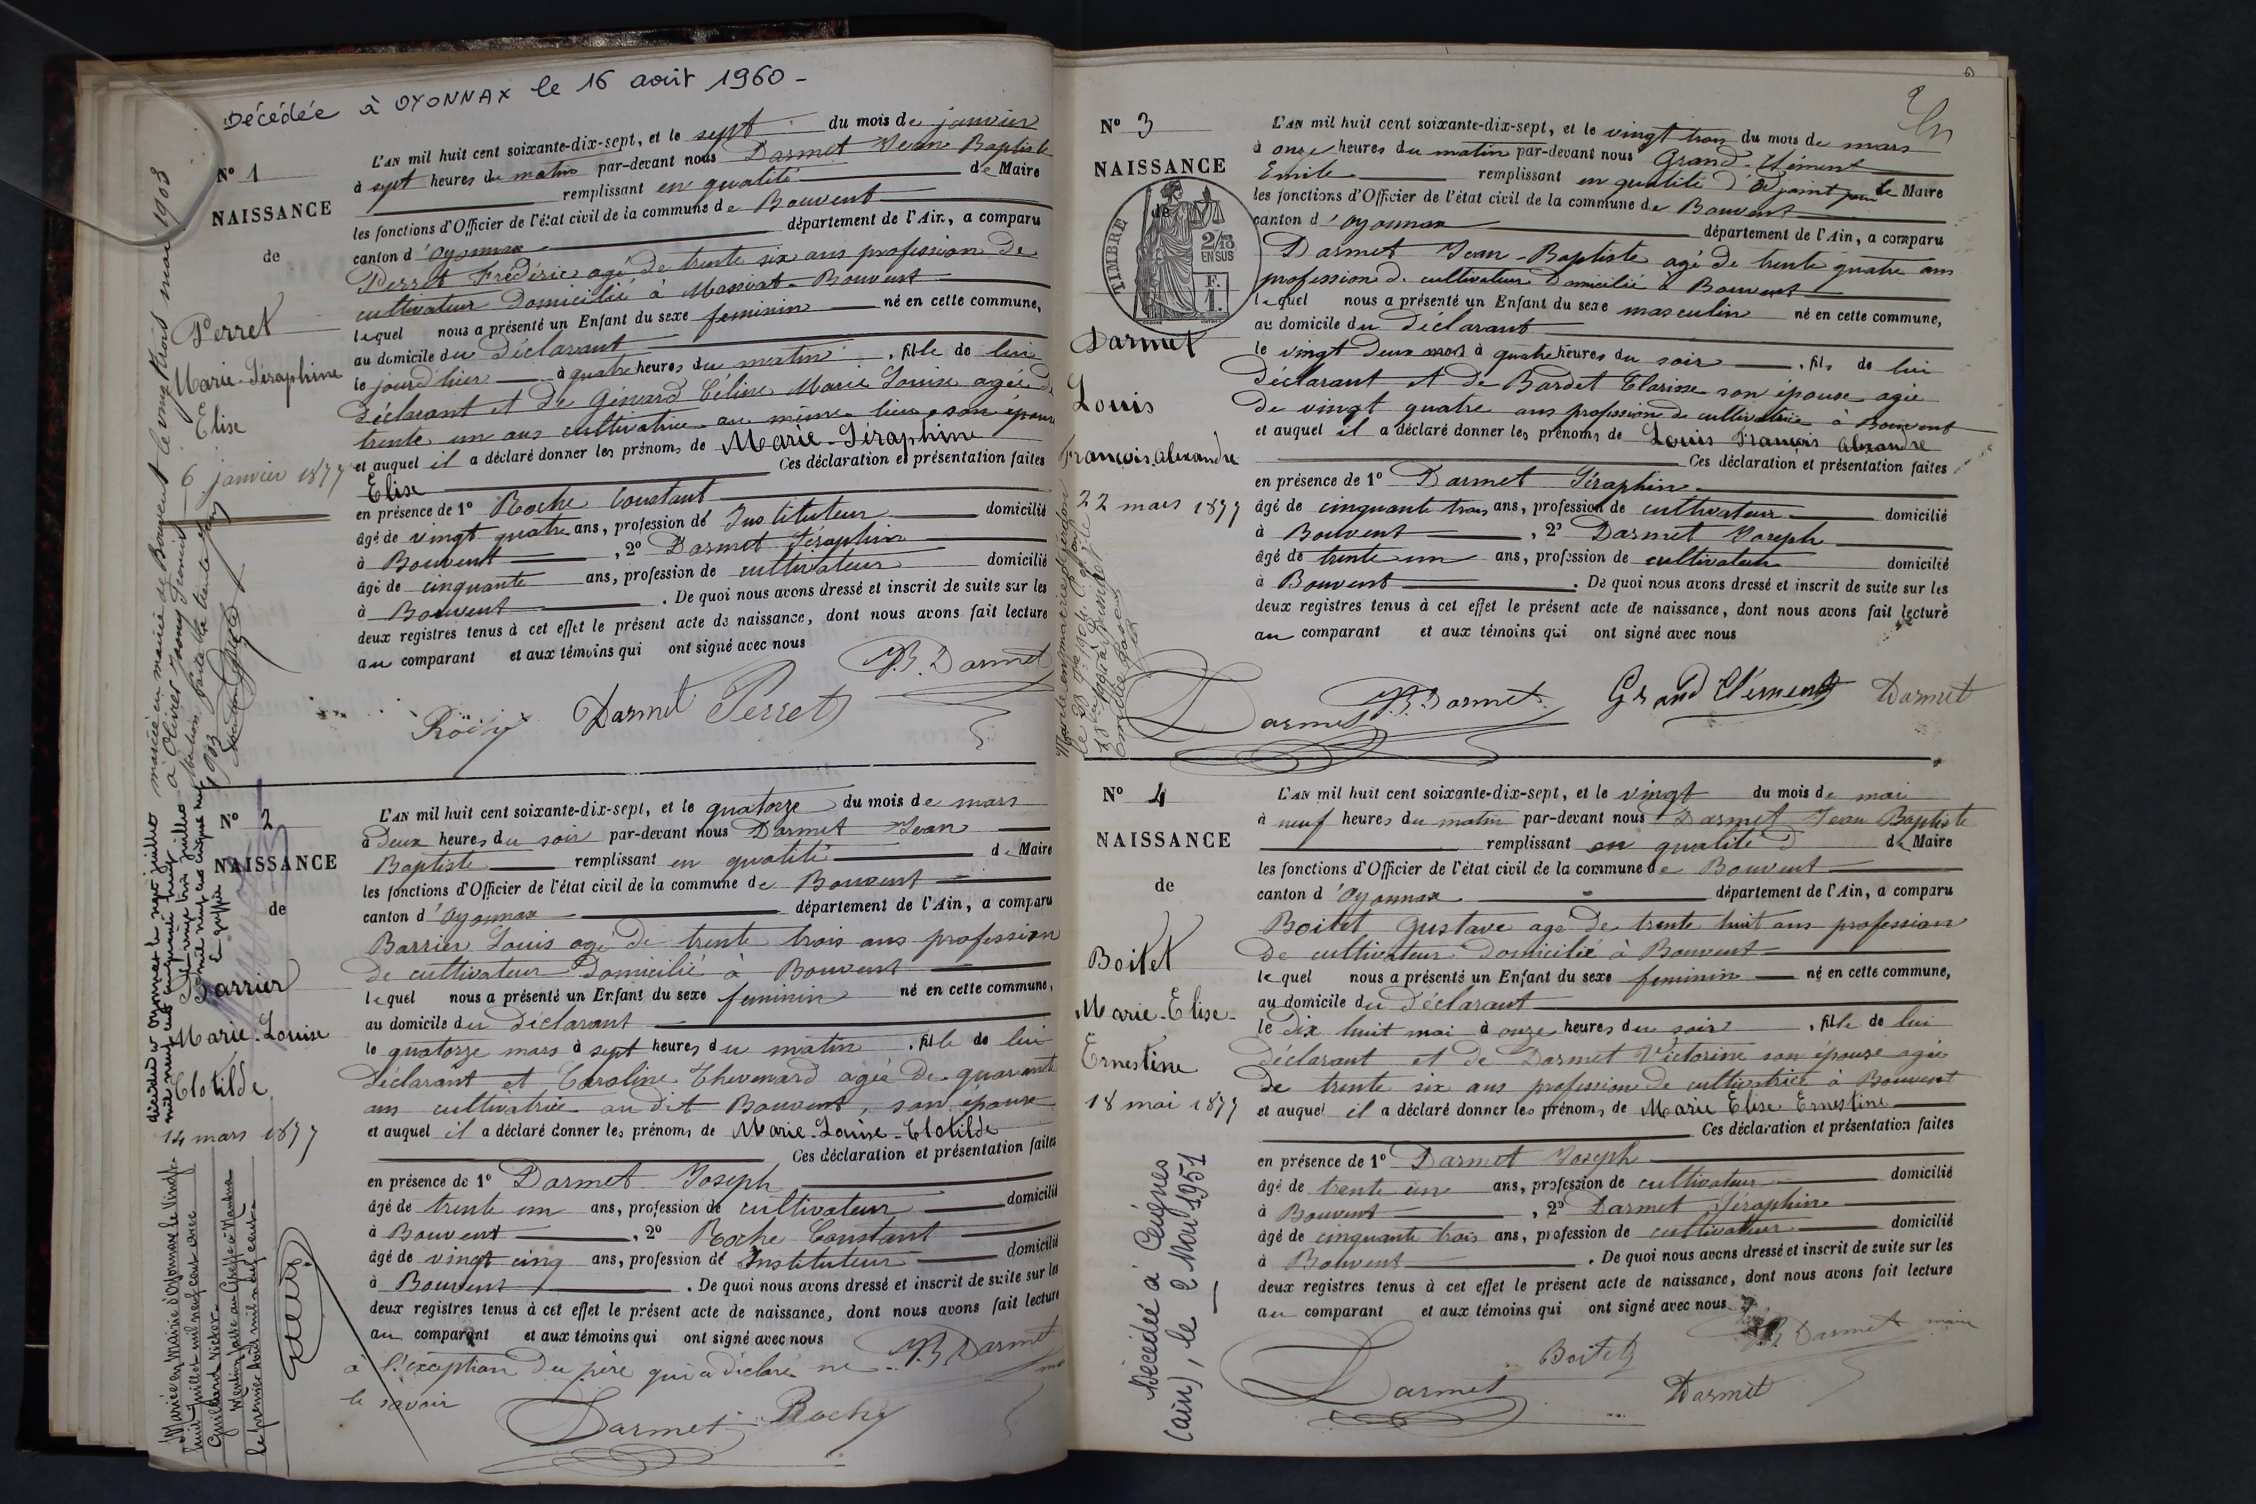 Décédée à OYONNAX le 16 août 1960 -
N° 1
NAISSANCE
de
Perret
Marie-Séraphine
Elise
6 janvier 1877
L'AN mil huit cent soixante-dix-sept, et le sept du mois de janvier
à sept heures du matin par-devant nous Darmet Jean Baptiste
remplissant en qualité de Maire
les fonctions d'Officier de l'état civil de la commune de Bouvent
canton d'Oyonnax département de l'Ain, a comparu
Perret Frédéric agé de trente six ans profession de
cultivateur domicilié à Massiat-Bouvent
lequel nous a présenté un Enfant du sexe feminin né en cette commune,
au domicile du Déclarant
le jourd'hier à quatre heures du matin, fille de lui
Déclarant et de Célina Marie Louise agée de
trente un ans cultivatrice au même lieu, son épouse
et auquel il a déclaré donner les prénoms de Marie-Séraphine
Elise Ces déclaration et présentation faites
en présence de 1° Roche Constant
âgé de vingt quatre ans, profession de Instituteur domicilié
à Bouvent, 2° Darmet Séraphin
âgé de cinquante ans, profession de cultivateur domicilié
à Bouvent. De quoi nous avons dressé et inscrit de suite sur les
deux registres tenus à cet effet le présent acte de naissance, dont nous avons fait lecture
au comparant et aux témoins qui ont signé avec nous
JB. Darmet
Roche Darmet Perret
N° 2
NAISSANCE
de
Barrier
Marie-Louise
Clotilde
14 mars 1877
Mariée en Mairie d'Oyonnax le Vingt
huit juillet mil neuf cent avec
Guillard Victor
Mention faite au Greffe à Nantua
le premier Août mil neuf cent.
L'AN mil huit cent soixante-dix-sept, et le quatorze du mois de mars
à Deux heures du soir par-devant nous Darmet Jean
Baptiste remplissant en qualité de Maire
les fonctions d'Officier de l'état civil de la commune de Bouvent
canton d'Oyonnax département de l'Ain, a comparu
Barrier Louis agé de trente trois ans profession
de cultivateur Domicilié à Bouvent
lequel nous a présenté un Enfant du sexe feminin né en cette commune,
au domicile du Déclarant
le quatorze mars à sept heures du matin, fille de lui
Déclarant et Caroline Thevenard agée de quarante
ans cultivatrice au dit Bouvent, son épouse
et auquel il a déclaré donner les prénoms de Marie-Louise-Clotilde
Ces déclaration et présentation faites
en présence de 1° Darmet Joseph
âgé de trente un ans, profession de cultivateur domicilié
à Bouvent, 2° Roche Constant
âgé de vingt cinq ans, profession de Instituteur domicilié
à Bouvent. De quoi nous avons dressé et inscrit de suite sur les
deux registres tenus à cet effet le présent acte de naissance, dont nous avons fait lecture
au comparant et aux témoins qui ont signé avec nous
à l'exception du père qui a déclaré ne JB Darmet
le savoir
Darmet Roche
N° 3
NAISSANCE
de
TIMBRE
2/10
EN SUS
F.
1.
Darmet
Louis
François Alexandre
22 mars 1877
L'AN mil huit cent soixante-dix-sept, et le vingt trois du mois de mars
à onze heures du matin par-devant nous Grand-Clément
Emile remplissant en qualité d'Adjoint pour le Maire
les fonctions d'Officier de l'état civil de la commune de Bouvent
canton d'Oyonnax département de l'Ain, a comparu
Darmet Jean-Baptiste agé de trente quatre ans
profession de cultivateur Domicilié à Bouvent
lequel nous a présenté un Enfant du sexe masculin né en cette commune,
au domicile du Déclarant
le vingt deux mars à quatre heures du soir, fils de lui
Déclarant et de Bardet Clarisse son épouse agée
de vingt quatre ans profession de cultivatrice à Bouvent
et auquel il a déclaré donner les prénoms de Louis François Alexandre
Ces déclaration et présentation faites
en présence de 1° Darmet Séraphin
âgé de cinquante trois ans, profession de cultivateur domicilié
à Bouvent, 2° Darmet Joseph
âgé de trente un ans, profession de cultivateur domicilié
à Bouvent. De quoi nous avons dressé et inscrit de suite sur les
deux registres tenus à cet effet le présent acte de naissance, dont nous avons fait lecture
au comparant et aux témoins qui ont signé avec nous
Darmet JB. Darmet Grand Clément Darmet
N° 4
NAISSANCE
de
Boitet
Marie-Elise-
Ernestine
18 mai 1877
Décédée à Ceignes
(Ain), le 2 Mai 1951
L'AN mil huit cent soixante-dix-sept, et le vingt du mois de mai
à neuf heures du matin par-devant nous Darmet Jean Baptiste
remplissant en qualité de Maire
les fonctions d'Officier de l'état civil de la commune de Bouvent
canton d'Oyonnax département de l'Ain, a comparu
Boitet Gustave agé de trente huit ans profession
de cultivateur domicilié à Bouvent
lequel nous a présenté un Enfant du sexe feminin né en cette commune,
au domicile du Déclarant
le dix huit mai à onze heures du soir, fille de lui
Déclarant et de Darmet Victorine son épouse agée
de trente six ans profession de cultivatrice à Bouvent
et auquel il a déclaré donner les prénoms de Marie Elise Ernestine
Ces déclaration et présentation faites
en présence de 1° Darmet Joseph
âgé de trente un ans, profession de cultivateur domicilié
à Bouvent, 2° Darmet Séraphin
âgé de cinquante trois ans, profession de cultivateur domicilié
à Bouvent. De quoi nous avons dressé et inscrit de suite sur les
deux registres tenus à cet effet le présent acte de naissance, dont nous avons fait lecture
au comparant et aux témoins qui ont signé avec nous
JB Darmet maire
Darmet Boitet Darmet